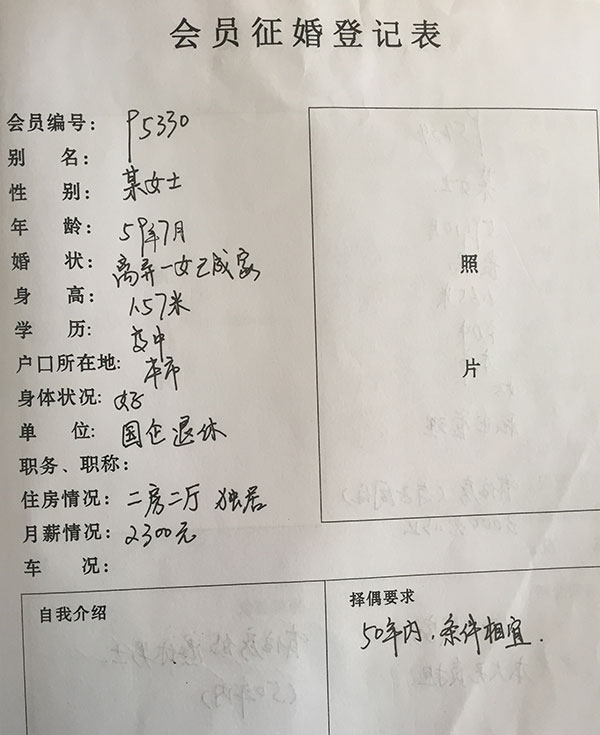 会员征婚登记表
会员编号： P5330
别 名：
性 别： 某女士
年 龄： 59年7月
婚 状： 离异一女已成家
身 高： 1.57米
学 历： 高中
户口所在地： 本市
身体状况： 好
单 位： 国企退休
职务、职称：
住房情况： 二房二厅 独居
月薪情况： 2300元
车 况：
照
片
自我介绍
择偶要求
50年内，条件相宜.